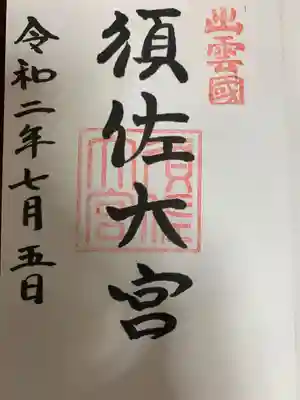 出雲國
須佐大宮
須佐大宮
令和二年七月五日